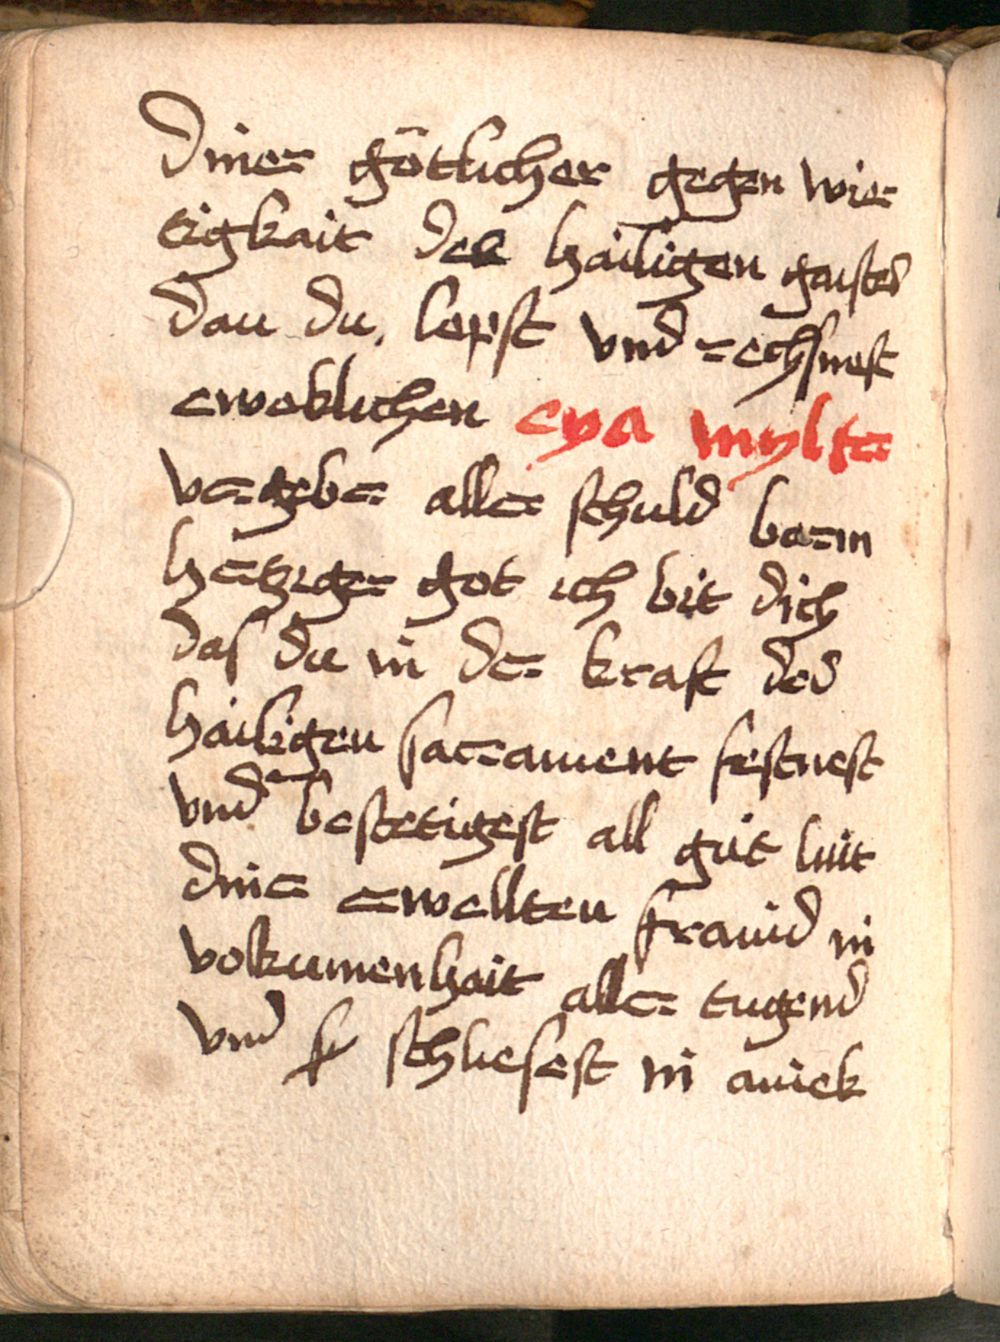 Diner götlicher gegen wir
tigkait des hailigen gaistes
dan du lepst vnd rechsnest
eweklichen eya mylter
vergeber aller schuld barm
hertziger got ich bit dich
das du in der kraft des
hailigen sacrament festnest
vnd bestetigest all gůt luit
dine erwellten fraind in
volkumenhait aller tugend
vnd sy schliesest in